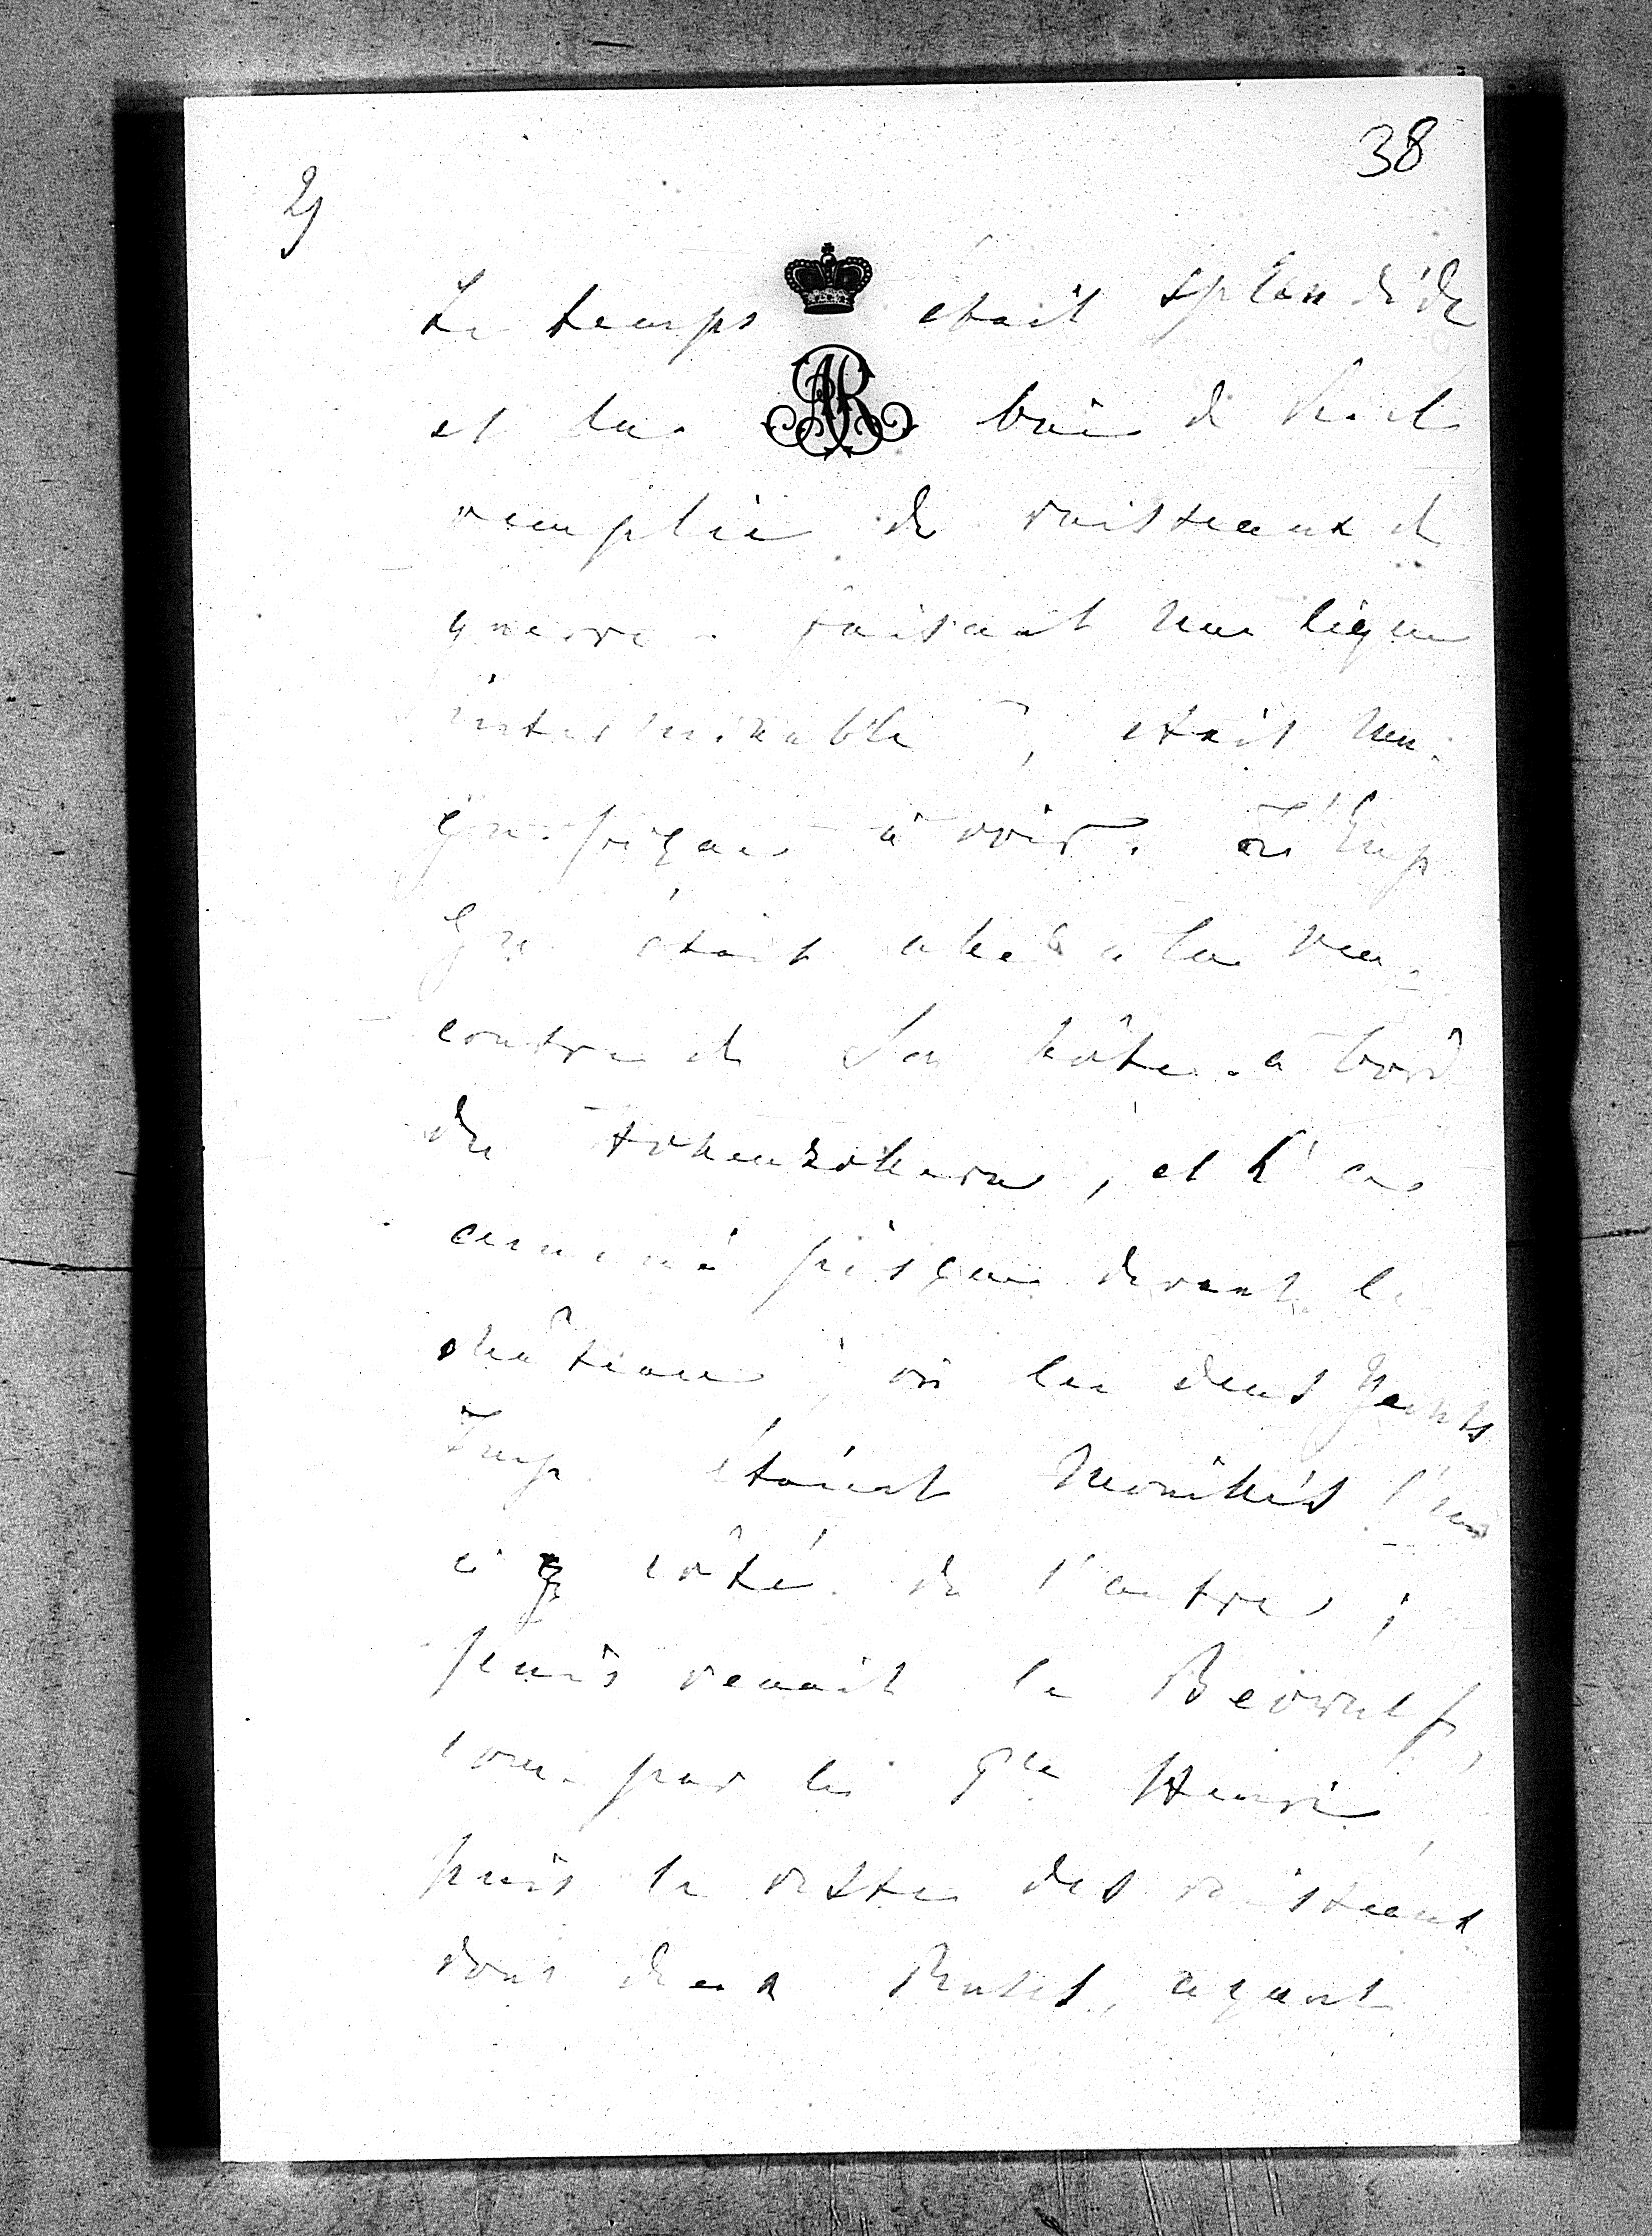 38
2)
Le temps était splendide
et la baie de Kiel
remplie de vaisseaux de
guerre faisant une ligne
interminable, était ma-
gnifique à voir. L'Emp
Gu. était allé à la ren-
contre de Son hôte à bord
du Hohenzollern, et l'a
amené jusque devant le
château, où les deux Yachts
Imp. étaient mouillés l'un
à côté de l'autre;
puis venait le Beowulf,
com. par le Pce Henri,
puis le reste des vaisseaux
dont deux Russes, ayant